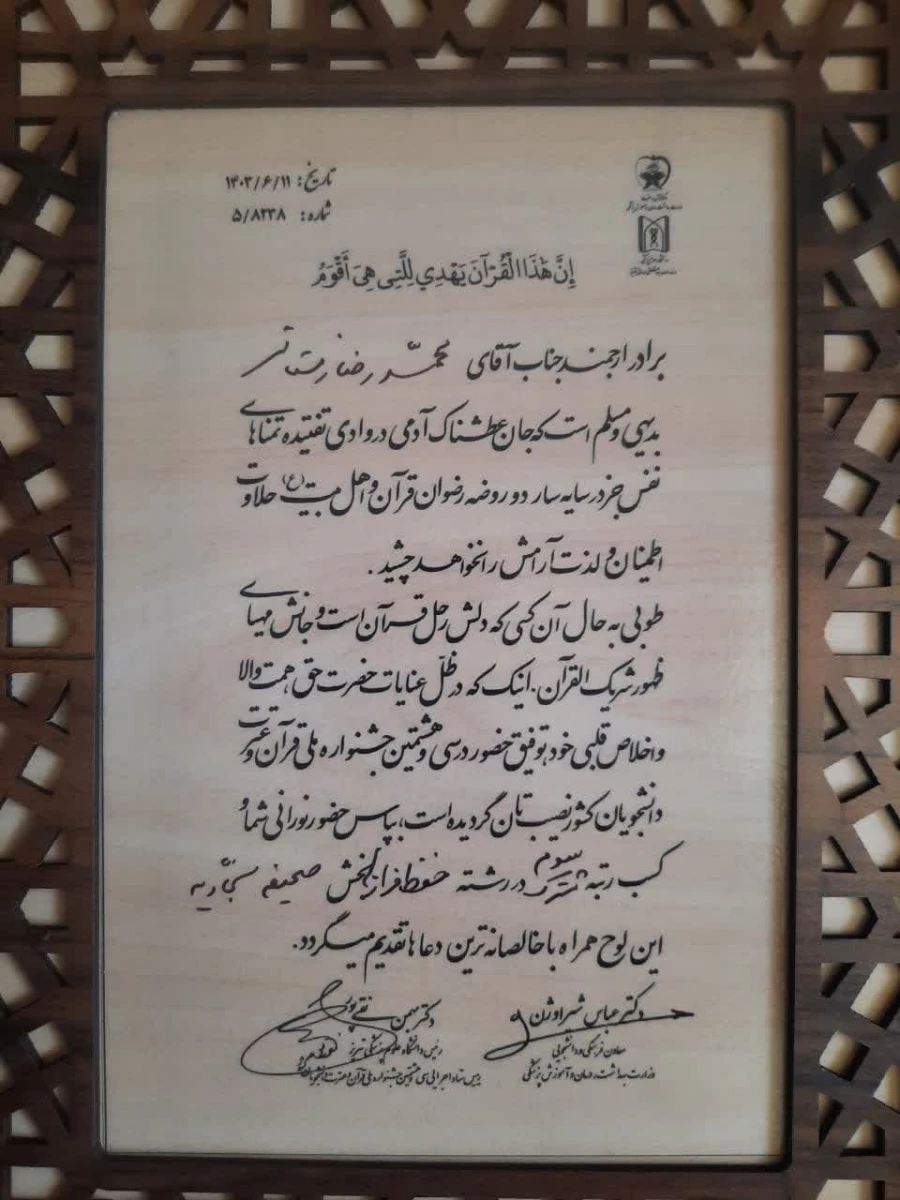 تاریخ: ۱۴۰۳/۶/۱۱
شماره: ۵/۸۲۳۸
إِنَّ هَٰذَا الْقُرْآنَ يَهْدِي لِلَّتِي هِيَ أَقْوَمُ
برادر ارجمند جناب آقای محمّد رضا رستاقی
بدیهی و مسلم است که جان عطشناک آدمی در وادی تفتیده تمناهای
نفس جز در سایه سار دو روضه رضوان قرآن و اهل بیت (ع) حلاوت
اطمینان و لذت آرامش را نخواهد چشید.
طوبی به حال آن کسی که دلش رحل قرآن است و جانش مهیای
ظهور شریک القرآن. اینک که در ظلّ عنایات حضرت حق، همت والا
و اخلاص قلبی خود، توفیق حضور در سی و هشتمین جشنواره ملی قرآن و عترت
دانشجویان کشور نصیب تان گردیده است، بپاس حضور نورانی شما و
کسب رتبه سوم مشترک در رشته حفظ فرازالبخش صحیفه سجّادیه
این لوح همراه با خالصانه ترین دعاها تقدیم میگردد.
دکتر عباس شیراوژن
معاون فرهنگی و دانشجویی
وزارت بهداشت، درمان و آموزش پزشکی
دکتر بهمن نقی پور
رئیس دانشگاه علوم پزشکی تبریز
رئیس ستاد اجرایی سی و هشتمین جشنواره ملی قرآن و عترت دانشجویان